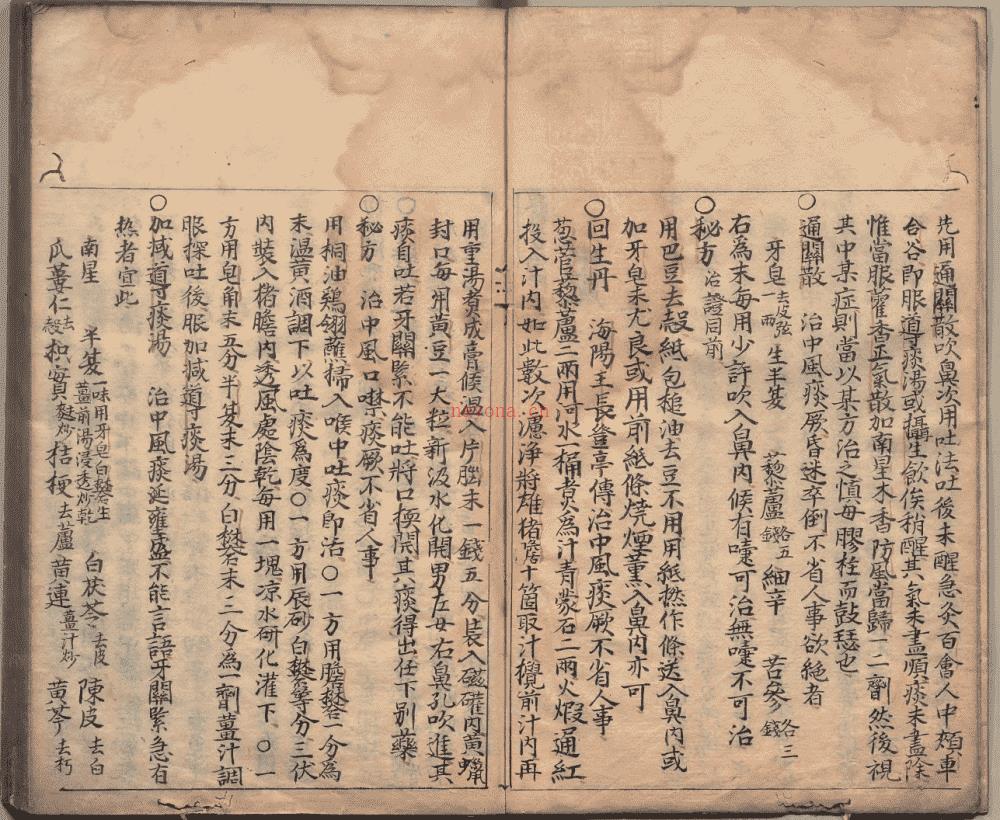 先用通關散吹鼻次用吐法吐後未醒急灸百會人中頰車
合谷即服導痰湯或攝生飲俟稍醒其氣未盡順痰未盡除
惟當服藿香正氣散加南星木香防風當歸一二劑然後視
其中某症則當以某方治之慎毋膠柱而鼓瑟也
○通關散 治中風痰厥昏迷卒倒不省人事欲絶者
牙皂去皮弦一兩 生半夏 藜蘆各五錢 細辛 苦參各三錢
右為末每用少許吹入鼻內候有嚏可治無嚏不可治
○秘方 治證同前
用巴豆去殼紙包槌油去豆不用用紙撚作條送入鼻內或
加牙皂末尤良或用前紙條燒煙薰入鼻內亦可
○回生丹 海陽王長登亭傳治中風痰厥不省人事
葱管藜蘆二兩用河水一桶煮為汁青蒙石二兩火煅通紅
投入汁內如此數次濾淨將雄猪膽十箇取汁攪前汁內再
用重湯煮成膏候溫入片腦末一錢五分裝入磁礶內黃蠟
封口每用黃豆一大粒新汲水化開男左女右鼻孔吹進其
痰自吐若牙關緊不能吐將口𢷬開其痰得出任下别藥
○秘方 治中風口噤痰厥不省人事
用桐油鷄翎蘸掃入喉中吐痰即活○一方用膽礬二分為
末溫黃酒調下以吐痰為度○一方用辰砂白礬等分三伏
內裝入猪膽內透風處陰乾每用一塊凉水研化灌下○一
方用皂角末五分半夏末三分白礬末三分為一劑薑汁調
服探吐後服加減導痰湯
○加減導痰湯 治中風痰涎壅盛不能言語牙關緊急有
熱者宜此
南星 半夏一味用牙皂白礬生薑煎湯浸透炒乾 白茯苓去皮 陳皮去白
瓜蔞仁去殼 枳實麩炒 桔梗去蘆 黃連薑汁炒 黃芩去朽
nozona.cn